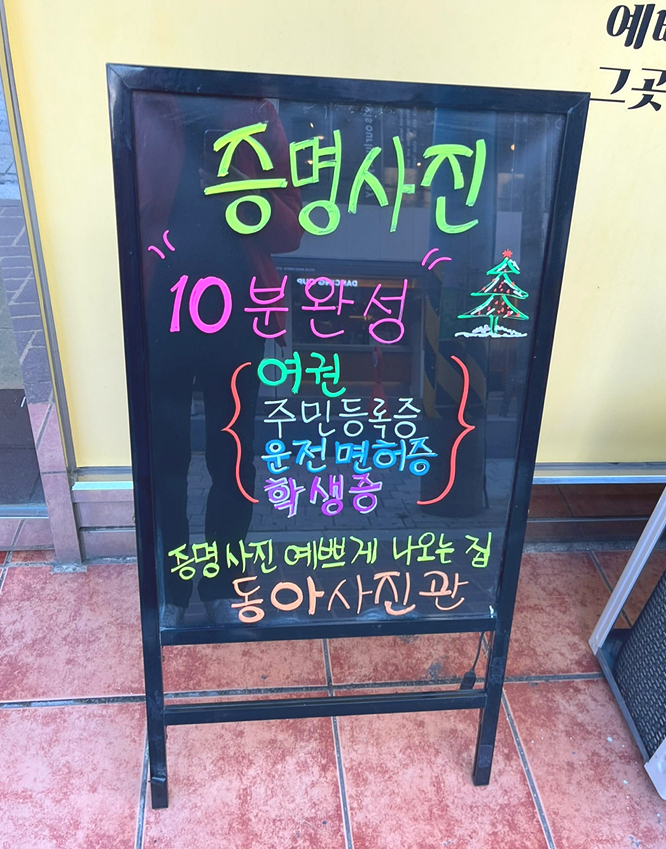 증명사진
10분완성
여권
주민등록증
운전면허증
학생증
증명사진 예쁘게 나오는 집
동아사진관
그곳